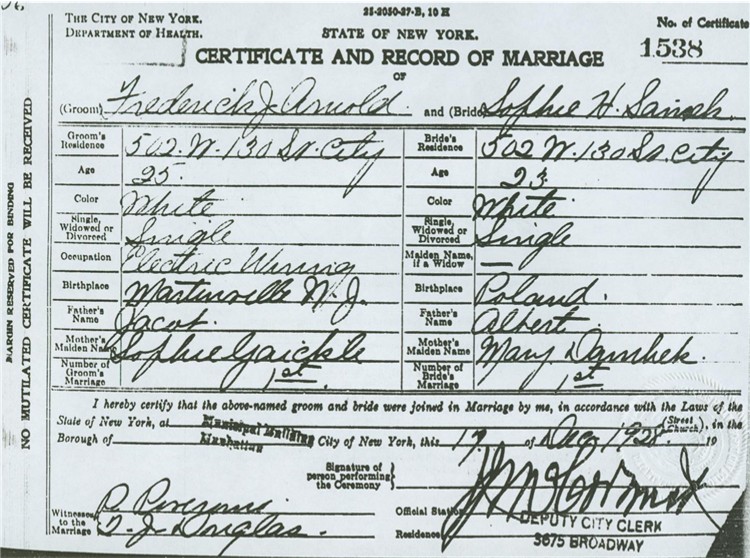 25-2050-27-B, 10 H
THE CITY OF NEW YORK.
DEPARTMENT OF HEALTH.
STATE OF NEW YORK.
No. of Certificate
1538
CERTIFICATE AND RECORD OF MARRIAGE
OF
(Groom) Frederick J. Arnold and (Bride) Sophie H.
Groom's Residence 502 W. 130 St. City
Bride's Residence 502 W. 130 St. City
Age 25
Age 23
Color White
Color White
Single, Widowed or Divorced Single
Single, Widowed or Divorced Single
Occupation Electric Wiring
Maiden Name, if a Widow —
Birthplace Martinville N.J.
Birthplace Poland.
Father's Name Jacob.
Father's Name Albert
Mother's Maiden Name Sophie Gaickle
Mother's Maiden Name Mary Dambek.
Number of Groom's Marriage 1st.
Number of Bride's Marriage 1st
I hereby certify that the above-named groom and bride were joined in Marriage by me, in accordance with the Laws of the
State of New York, at Municipal Building (Street Church), in the
Borough of Manhattan City of New York, this 17 of Dec 1928. 19
Signature of person performing the Ceremony
Witnesses to the Marriage
T. J. Douglas.
Official Station
DEPUTY CITY CLERK
Residence
3675 BROADWAY
MARGIN RESERVED FOR BINDING
NO MUTILATED CERTIFICATE WILL BE RECEIVED